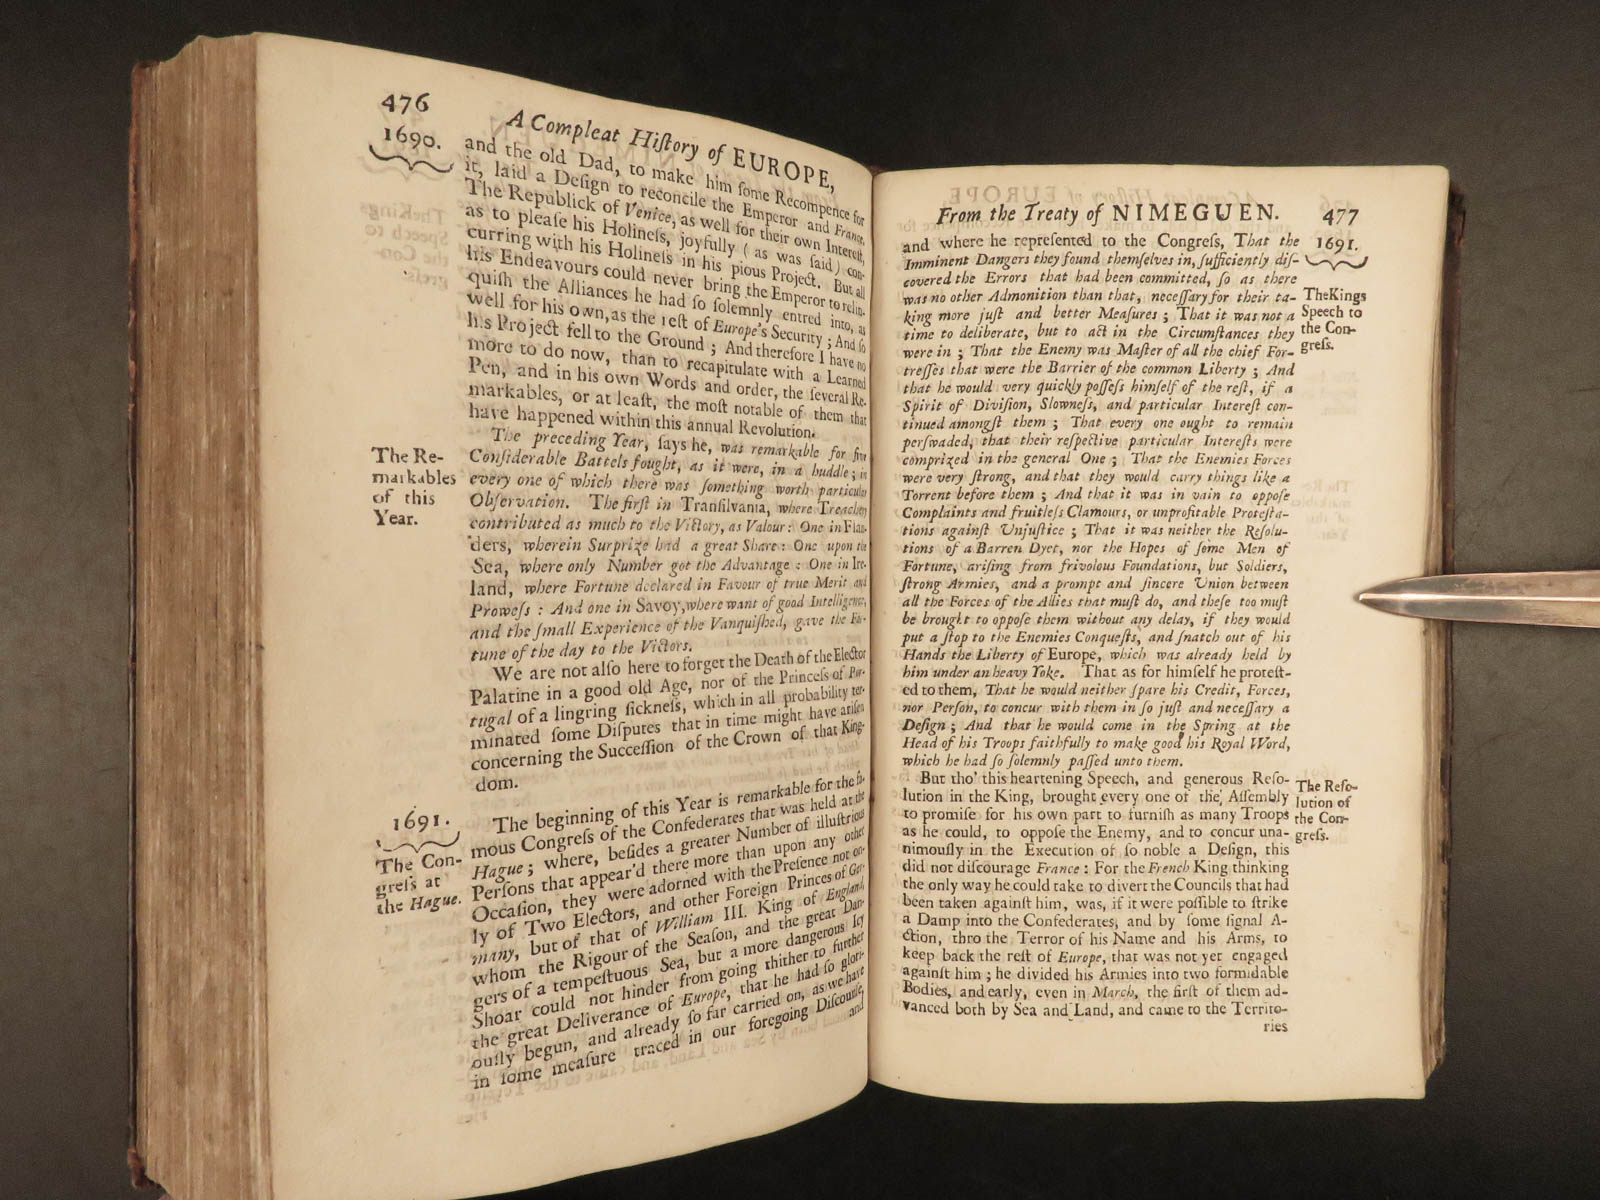 476
A Compleat Hiſtory of EUROPE,
1690.
and the old Dad, to make him ſome Recompence for
it, laid a Deſign to reconcile the Emperor and France,
The Republick of Venice, as well for their own Intereſt,
as to pleaſe his Holineſs, joyfully (as was ſaid) con-
curring with his Holineſs in his pious Project. But all
his Endeavours could never bring the Emperor to relin-
quiſh the Alliances he had ſo ſolemnly entred into, as
well for his own, as the reſt of Europe's Security; And ſo
his Project fell to the Ground; And therefore I have no
more to do now, than to recapitulate with a Learned
Pen, and in his own Words and order, the ſeveral Re-
markables, or at leaſt, the moſt notable of them that
have happened within this annual Revolution.
The Re-
markables
of this
Year.
The preceding Year, ſays he, was remarkable for five
Conſiderable Battels fought, as it were, in a huddle; in
every one of which there was ſomething worth particular
Obſervation. The firſt in Tranſilvania, where Treachery
contributed as much to the Victory, as Valour: One in Flan-
ders, wherein Surprize had a great Share: One upon the
Sea, where only Number got the Advantage: One in Ire-
land, where Fortune declared in Favour of true Merit and
Proweſs: And one in Savoy, where want of good Intelligence,
and the ſmall Experience of the Vanquiſhed, gave the For-
tune of the day to the Victors.
We are not alſo here to forget the Death of the Elector
Palatine in a good old Age, nor of the Princeſs of Por-
tugal of a lingring ſickneſs, which in all probability ter-
minated ſome Diſputes that in time might have ariſen
concerning the Succeſſion of the Crown of that King-
dom.
1691.
The Con-
greſs at
the Hague.
The beginning of this Year is remarkable for the fa-
mous Congreſs of the Confederates that was held at the
Hague; where, beſides a greater Number of illuſtrious
Perſons that appear'd there more than upon any other
Occaſion, they were adorned with the Preſence not on-
ly of Two Electors, and other Foreign Princes of Ger-
many, but of that of William III. King of England,
whom the Rigour of the Seaſon, and the great Dan-
gers of a tempeſtuous Sea, but a more dangerous Icy
Shoar could not hinder from going thither to further
the great Deliverance of Europe, that he had ſo glori-
ouſly begun, and already ſo far carried on, as we have
in ſome meaſure traced in our foregoing Diſcourſe,
and
From the Treaty of NIMEGUEN. 477
1691.
and where he repreſented to the Congreſs, That the
Imminent Dangers they found themſelves in, ſufficiently diſ-
covered the Errors that had been committed, ſo as there
was no other Admonition than that, neceſſary for their ta-
king more juſt and better Meaſures; That it was not a
time to deliberate, but to act in the Circumſtances they
were in; That the Enemy was Maſter of all the chief For-
treſſes that were the Barrier of the common Liberty; And
that he would very quickly poſſeſs himſelf of the reſt, if a
Spirit of Diviſion, Slowneſs, and particular Intereſt con-
tinued amongſt them; That every one ought to remain
perſwaded, that their reſpective particular Intereſts were
comprized in the general One; That the Enemies Forces
were very ſtrong, and that they would carry things like a
Torrent before them; And that it was in vain to oppoſe
Complaints and fruitleſs Clamours, or unprofitable Proteſta-
tions againſt Unjuſtice; That it was neither the Reſolu-
tions of a Barren Dyet, nor the Hopes of ſome Men of
Fortune, ariſing from frivolous Foundations, but Soldiers,
ſtrong Armies, and a prompt and ſincere Union between
all the Forces of the Allies that muſt do, and theſe too muſt
be brought to oppoſe them without any delay, if they would
put a ſtop to the Enemies Conqueſts, and ſnatch out of his
Hands the Liberty of Europe, which was already held by
him under an heavy Yoke. That as for himſelf he proteſt-
ed to them, That he would neither ſpare his Credit, Forces,
nor Perſon, to concur with them in ſo juſt and neceſſary a
Deſign; And that he would come in the Spring at the
Head of his Troops faithfully to make good his Royal Word,
which he had ſo ſolemnly paſſed unto them.
The Kings
Speech to
the Con-
greſs.
But tho' this heartening Speech, and generous Reſo-
lution in the King, brought every one of the Aſſembly
to promiſe for his own part to furniſh as many Troops
as he could, to oppoſe the Enemy, and to concur una-
nimouſly in the Execution of ſo noble a Deſign, this
did not diſcourage France: For the French King thinking
the only way he could take to divert the Councils that had
been taken againſt him, was, if it were poſſible to ſtrike
a Damp into the Confederates, and by ſome ſignal A-
ction, thro the Terror of his Name and his Arms, to
keep back the reſt of Europe, that was not yet engaged
againſt him; he divided his Armies into two formidable
Bodies, and early, even in March, the firſt of them ad-
vanced both by Sea and Land, and came to the Territo-
ries
The Reſo-
lution of
the Con-
greſs.